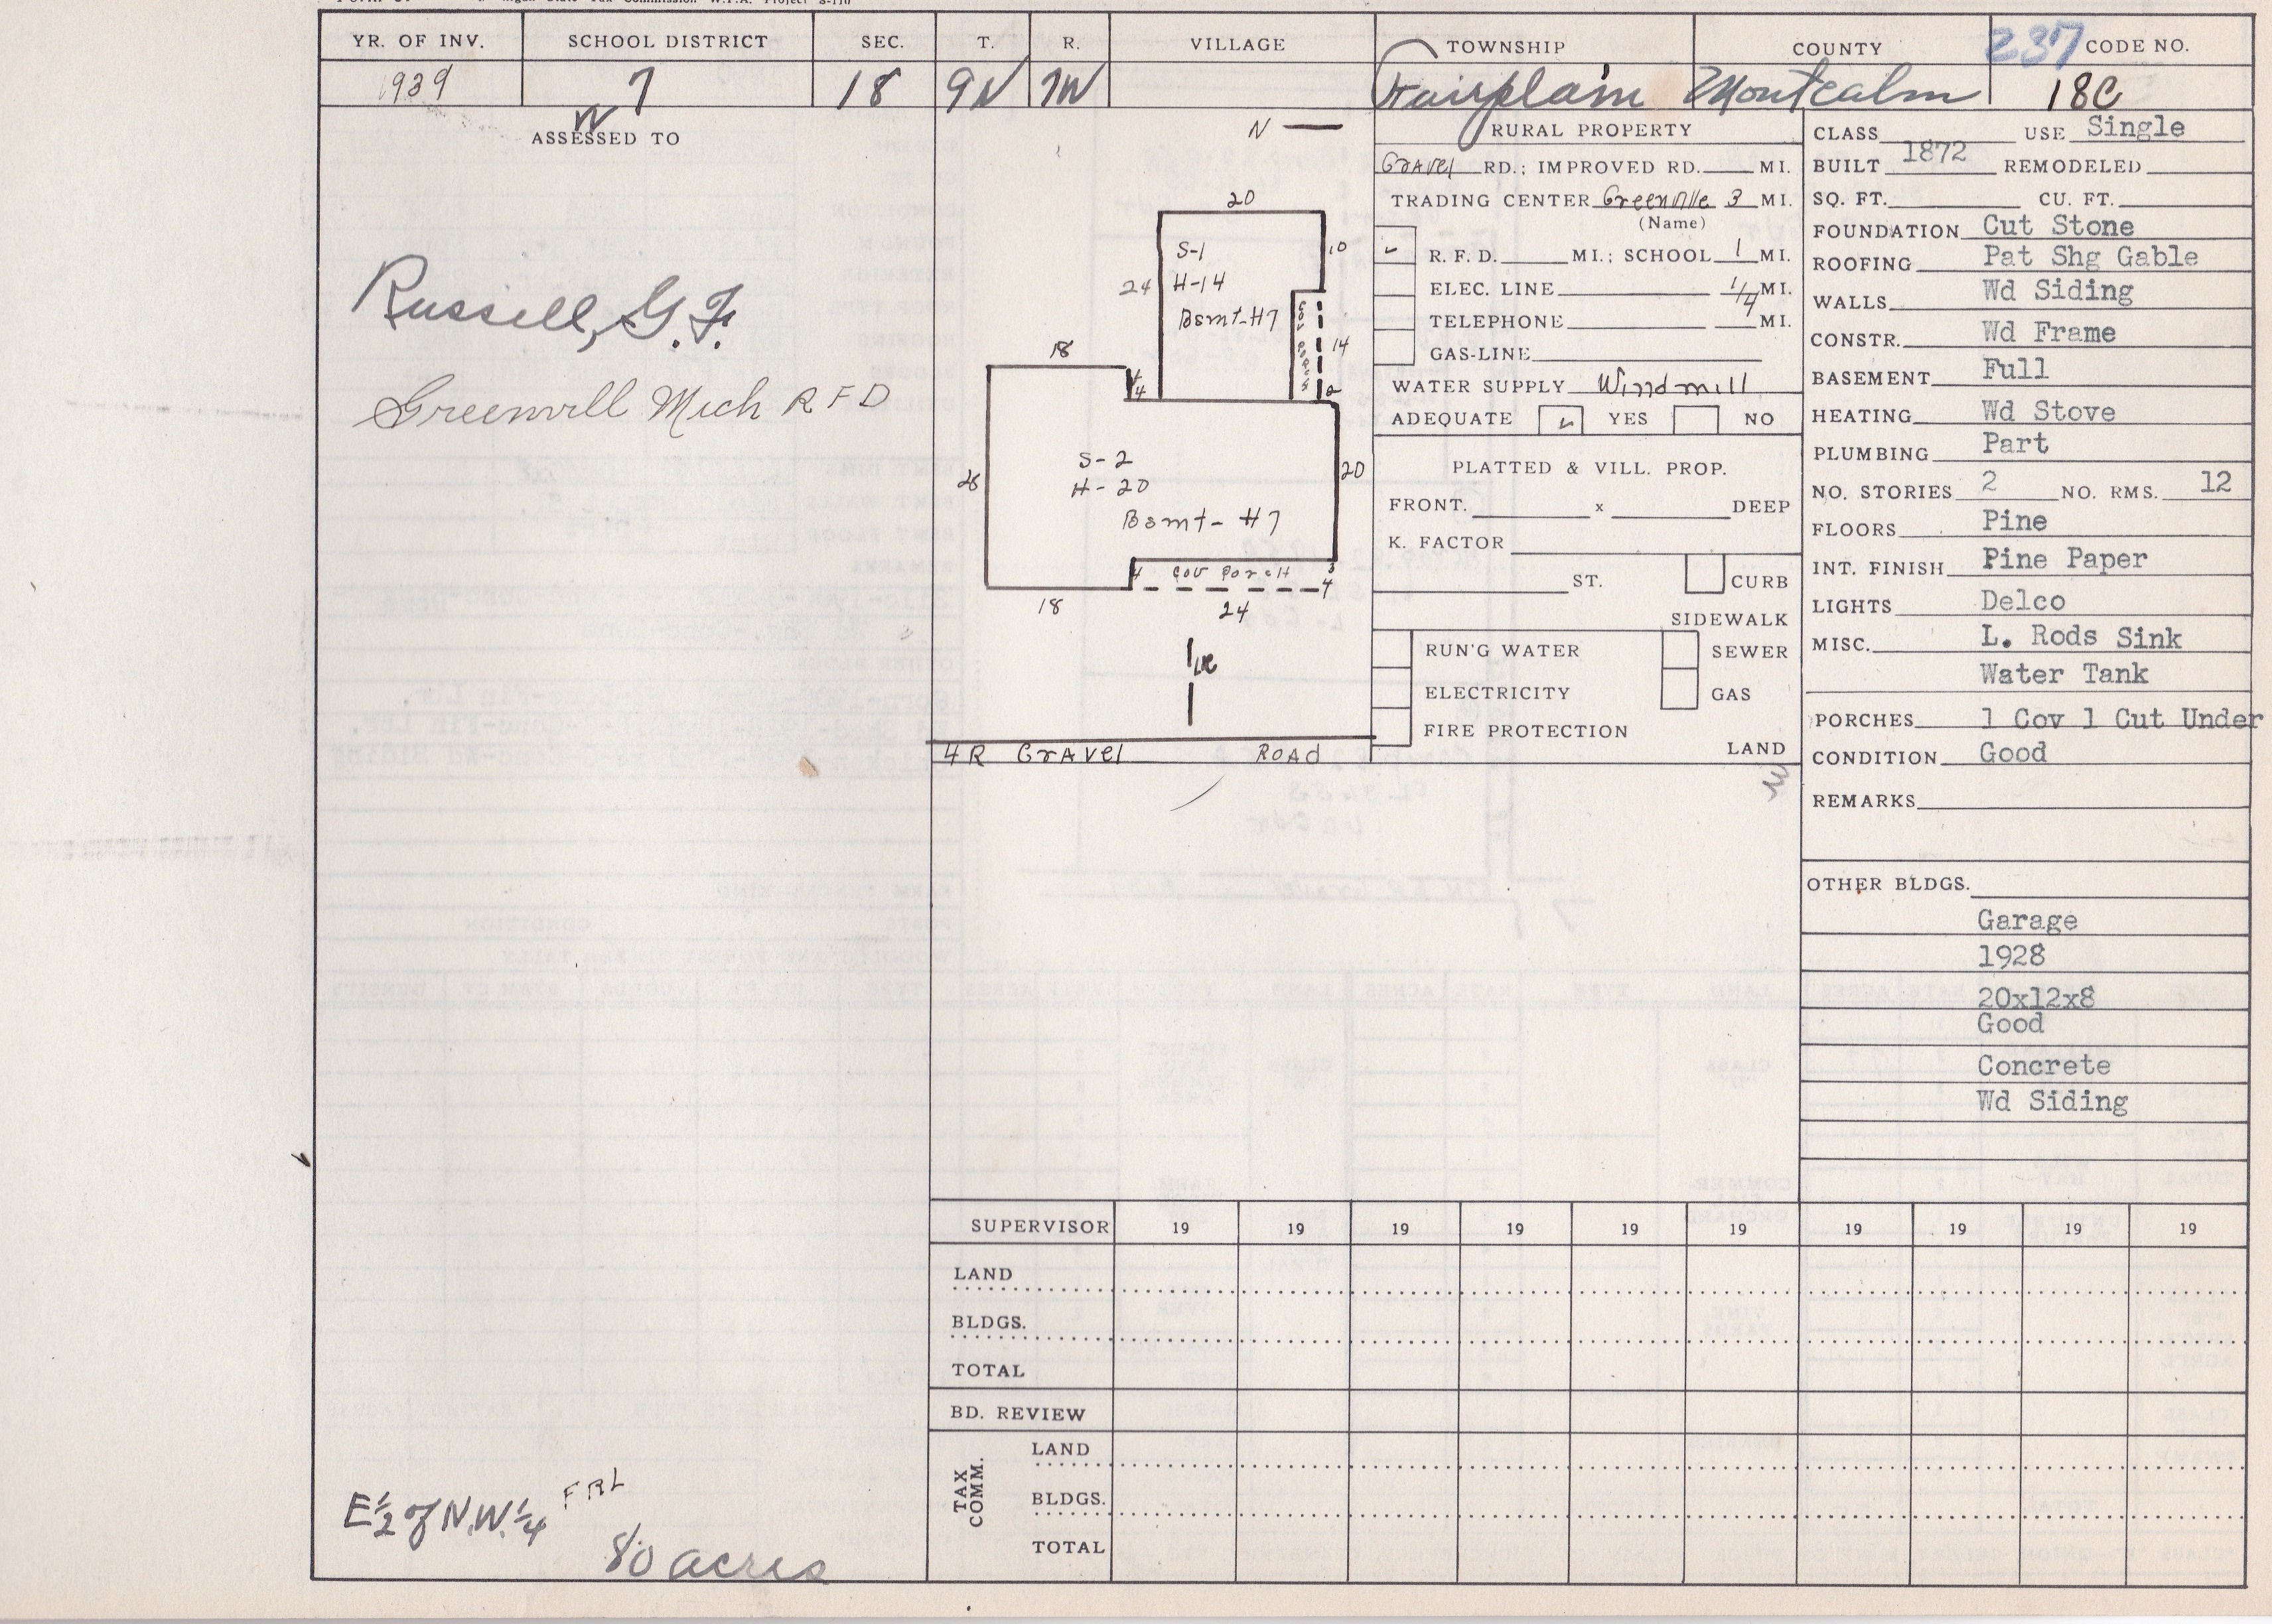 Tax Commission W.P.A. Project S-170
YR. OF INV. SCHOOL DISTRICT SEC. T. R. VILLAGE TOWNSHIP COUNTY 237 CODE NO.
1939 7 18 9N 7W Fairplain Montcalm 18C
ASSESSED TO
Russell, G. F.
Greenvill Mich R F D
E 1/2 of N.W. 1/4 FRL
80 acres
N
20
S-1
H-14
Bsmt-H7
24
10
COV PORCH
14
2
18
4
S-2
H-20
Bsmt-H7
20
4 Cov Porch
4
18
24
4R GRAVEL ROAD
RURAL PROPERTY
Gravel RD.; IMPROVED RD. MI.
TRADING CENTER Greenville 3 MI.
(Name)
R. F. D. MI.; SCHOOL 1 MI.
ELEC. LINE 1/4 MI.
TELEPHONE MI.
GAS-LINE
WATER SUPPLY Windmill
ADEQUATE YES NO
PLATTED & VILL. PROP.
FRONT. x DEEP
K. FACTOR
ST. CURB
SIDEWALK
RUN'G WATER SEWER
ELECTRICITY GAS
FIRE PROTECTION
LAND
CLASS USE Single
BUILT 1872 REMODELED
SQ. FT. CU. FT.
FOUNDATION Cut Stone
ROOFING Pat Shg Gable
WALLS Wd Siding
CONSTR. Wd Frame
BASEMENT Full
HEATING Wd Stove
PLUMBING Part
NO. STORIES 2 NO. RMS. 12
FLOORS Pine
INT. FINISH Pine Paper
LIGHTS Delco
MISC. L. Rods Sink
Water Tank
PORCHES 1 Cov 1 Cut Under
CONDITION Good
REMARKS
OTHER BLDGS.
Garage
1928
20x12x8
Good
Concrete
Wd Siding
SUPERVISOR 19 19 19 19 19 19 19 19 19 19
LAND
BLDGS.
TOTAL
BD. REVIEW
TAX COMM.
LAND
BLDGS.
TOTAL